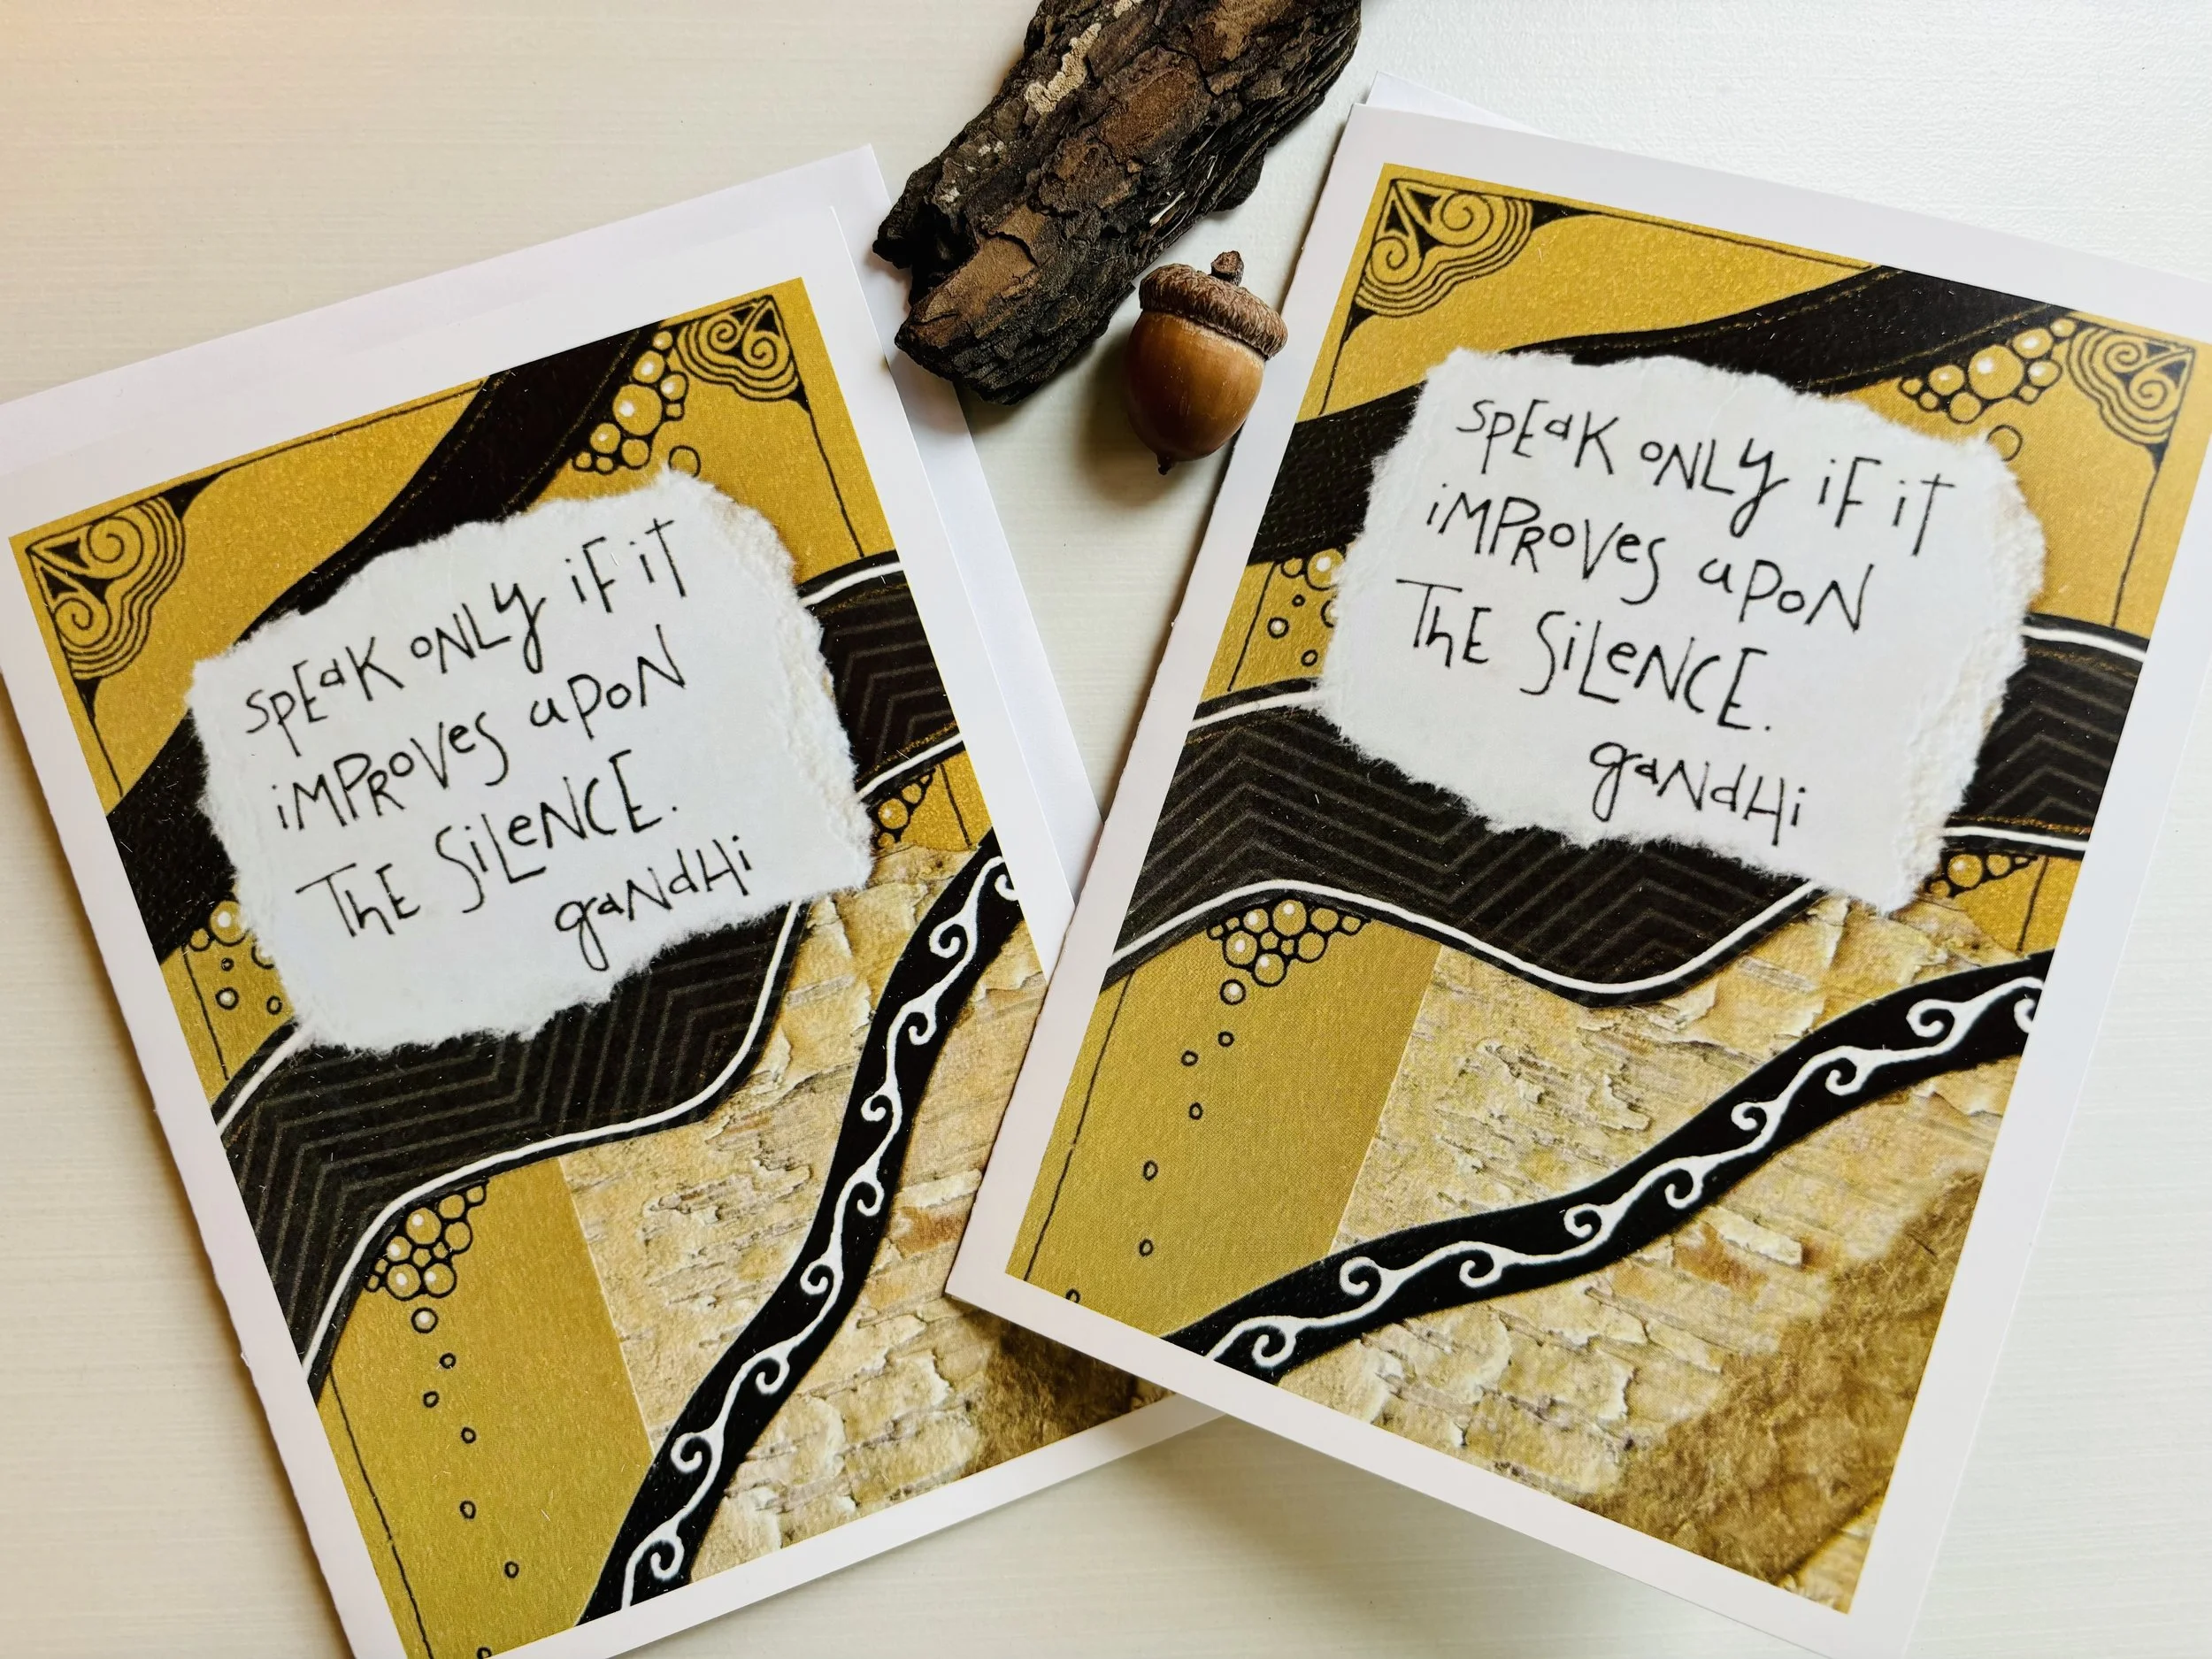 SPEaK ONLy iF iT
iMPRoVes uPoN
ThE SiLeNCE.
gaNdHi
SPEaK ONLy iF iT
iMPRoVes uPoN
ThE SiLeNCE.
gaNdHi